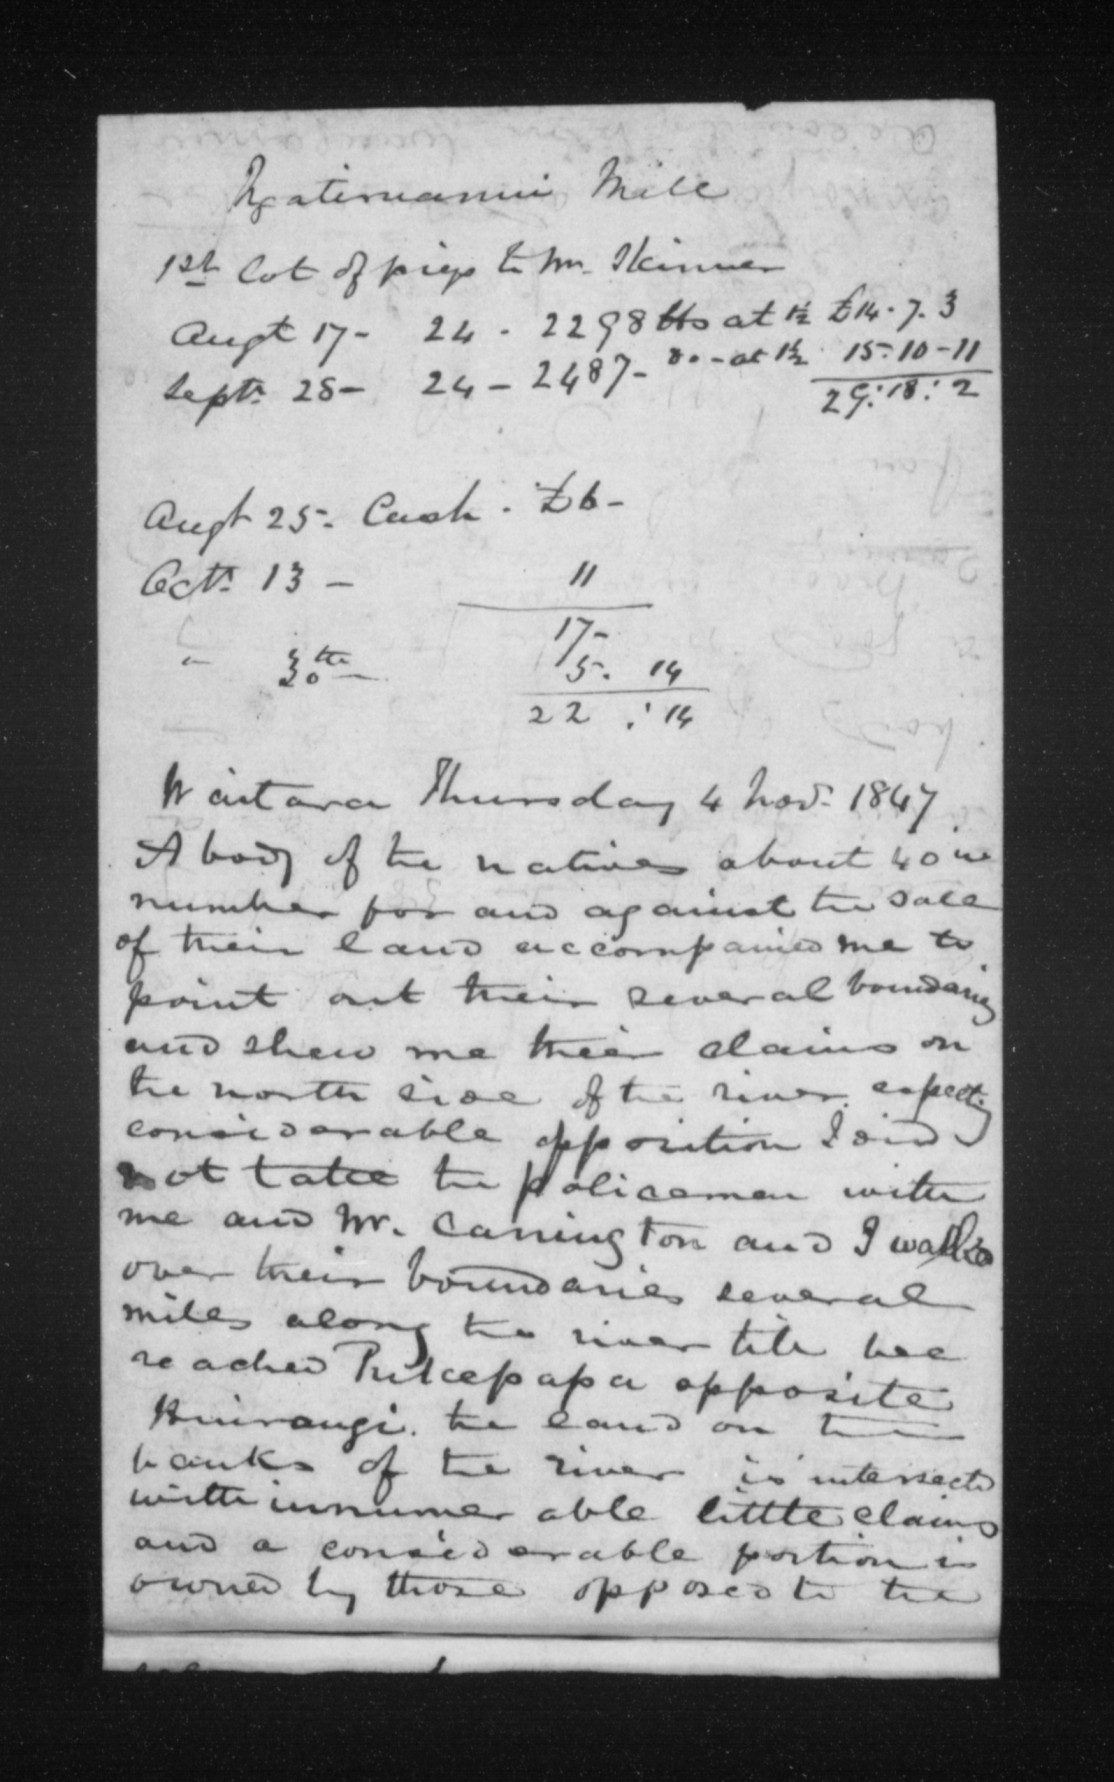 Ngatiruanui Mill
1st Lot of pigs to Mr. Skinner
Augt 17 - 24 - 2298 lbs at 1½ £14. 7. 3
Septr 28 - 24 - 2487 - do - at 1½ 15-10-11
29: 18: 2
Augt 25 - Cash - £6 -
Octr 13 - 11
17 -
" 30th 5. 14
22 : 14
Waitara Thursday 4 Novr 1847.
A body of the natives about 40 in
number for and against the sale
of their land accompanied me to
point out their several boundaries
and shew me their claims on
the north side of the river. expecting
considerable opposition I did
not take the policemen with
me and Mr. Carrington and I walked
over their boundaries several
miles along the river till we
reached Pukepapa opposite
Huirangi. the land on the
banks of the river is intersected
with innumerable little claims
and a considerable portion is
owned by those opposed to the